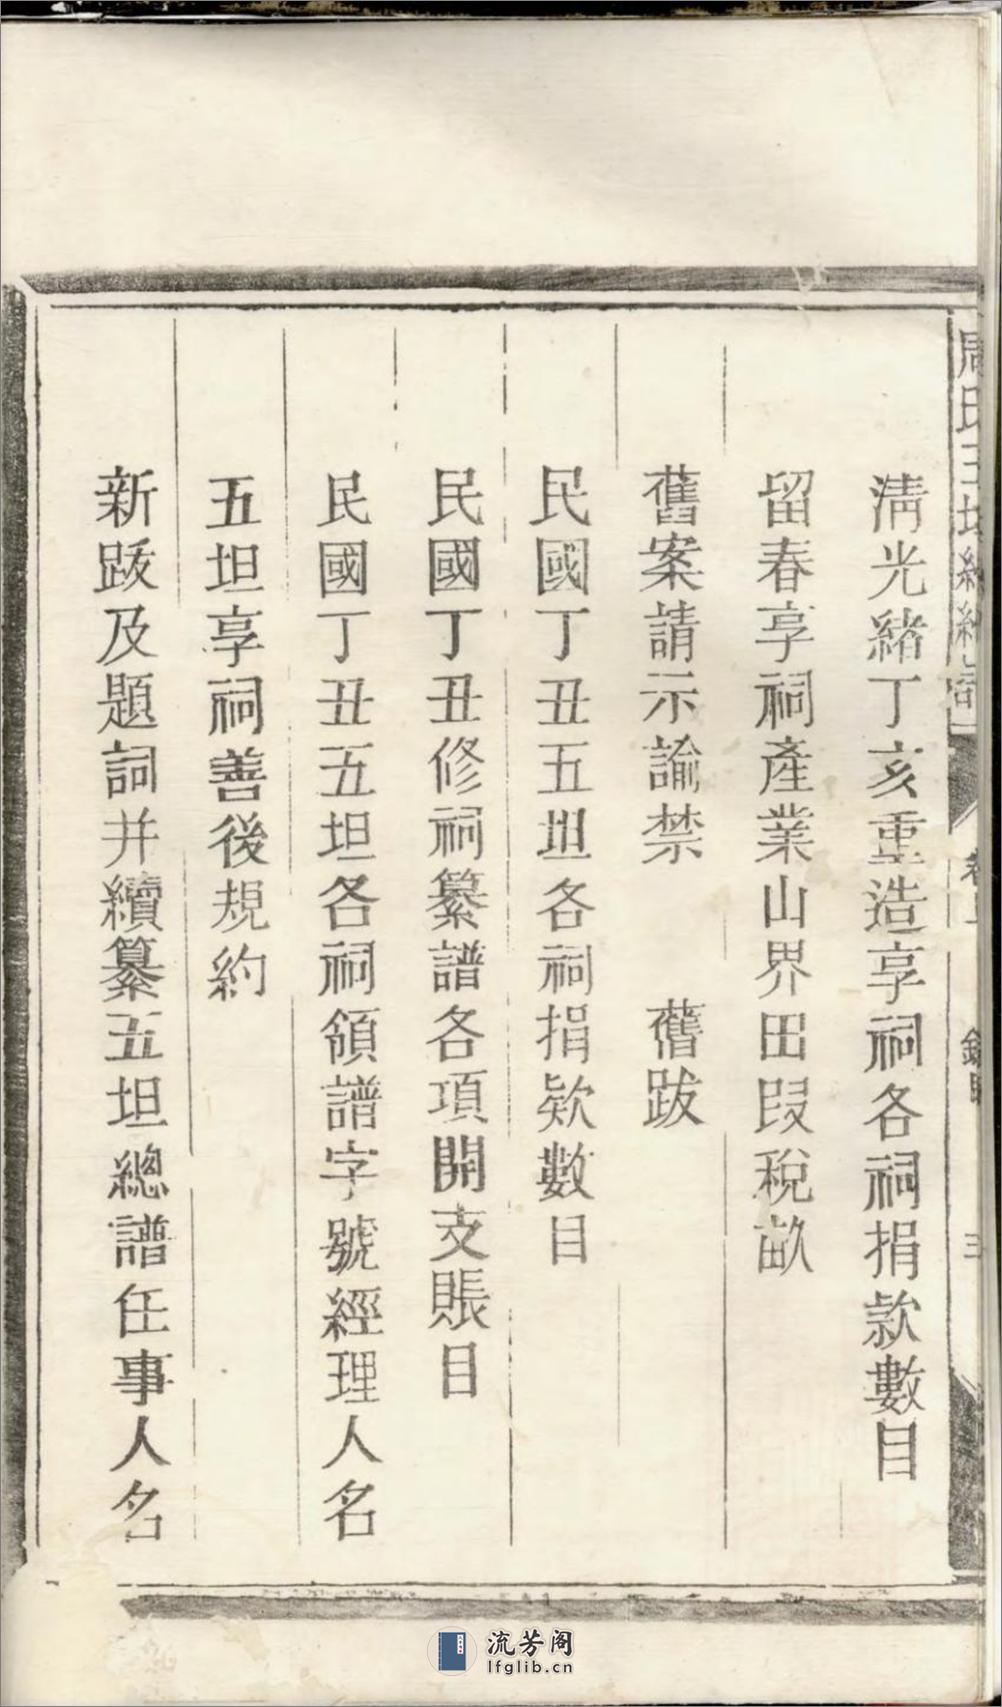 清光緒丁亥重造享祠各祠捐款數目
留春享祠產業山界田叚稅畝
舊案請示諭禁　舊跋
民國丁丑五坦各祠捐欵數目
民國丁丑修祠纂譜各項開支賬目
民國丁丑五坦各祠領譜字號經理人名
五坦享祠善後規約
新跋及題詞并續纂五坦總譜任事人名
流芳阁
lfglib.cn